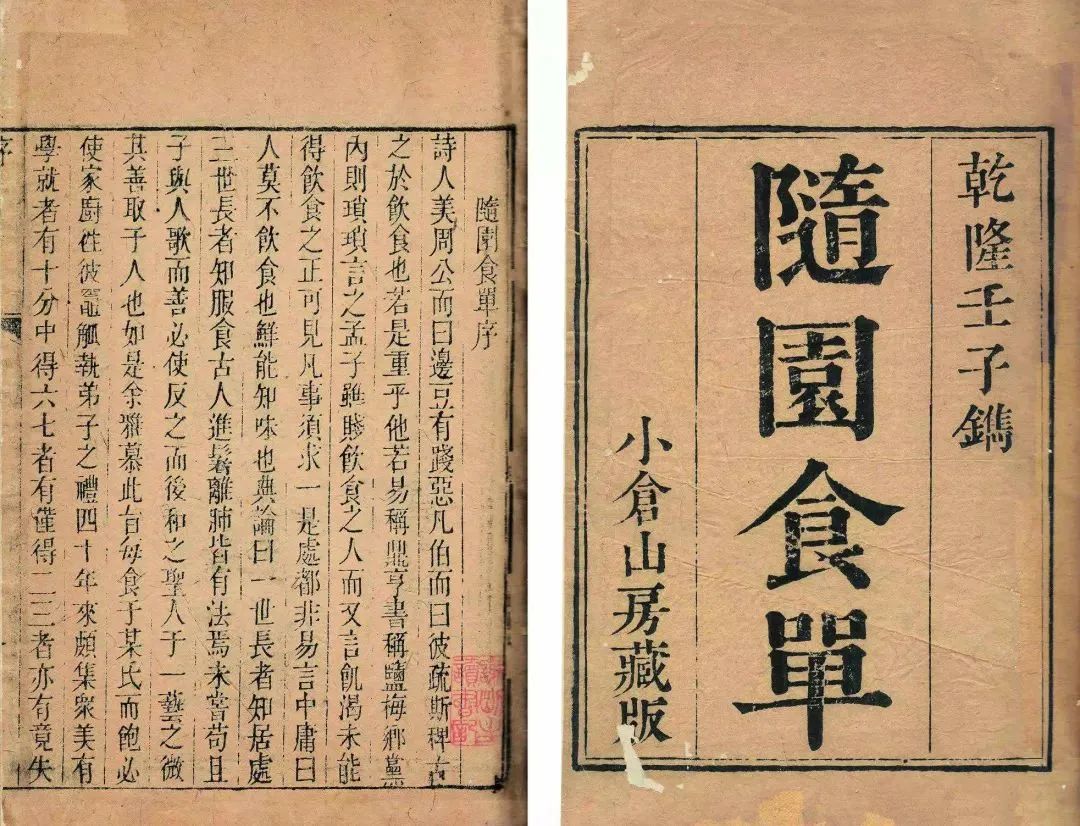 乾隆壬子鐫
隨園食單
小倉山房藏版
隨園食單序
詩人美周公而曰邊豆有踐惡凡伯而曰彼疏斯稗古
之於飲食也若是重乎他若易稱鼎亨書稱鹽梅鄉黨
內則瑣瑣言之孟子雖賤飲食之人而又言飢渴未能
得飲食之正可見凡事須求一是處都非易言中庸曰
人莫不飲食也鮮能知味也典論曰一世長者知居處
三世長者知服食古人進鬐離肺皆有法焉未嘗苟且
子與人歌而善必使反之而後和之聖人于一藝之微
其善取于人也如是余雅慕此旨每食于某氏而飽必
使家廚往彼竈觚執弟子之禮四十年來頗集眾美有
學就者有十分中得六七者有僅得二三者亦有竟失
序